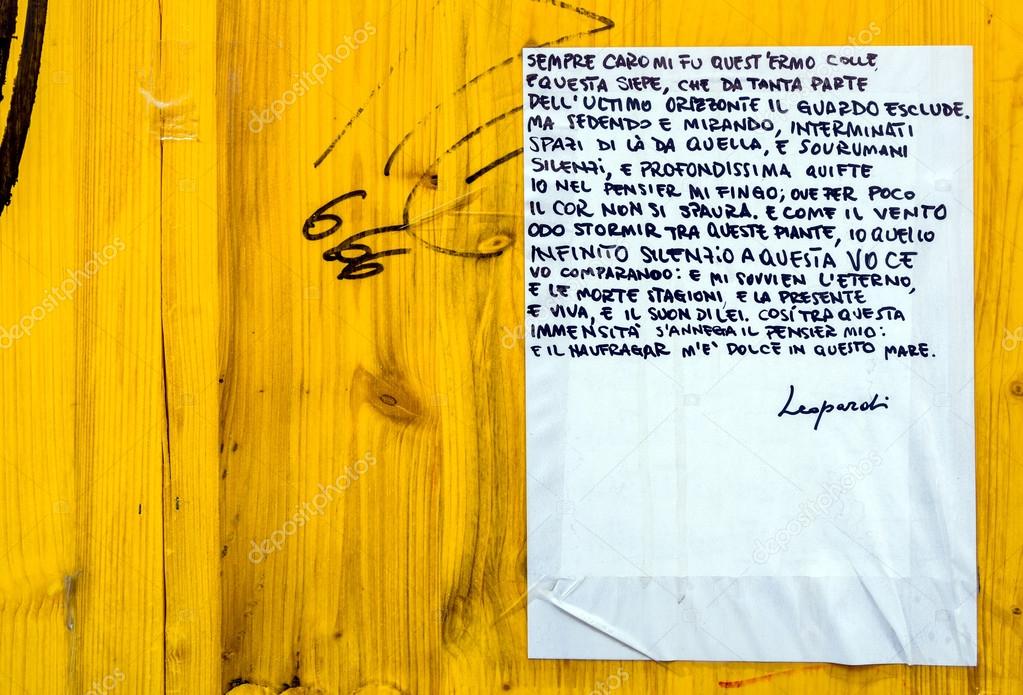 SEMPRE CARO MI FU QUEST'ERMO COLLE,
E QUESTA SIEPE, CHE DA TANTA PARTE
DELL'ULTIMO ORIZZONTE IL GUARDO ESCLUDE.
MA SEDENDO E MIRANDO, INTERMINATI
SPAZI DI LÀ DA QUELLA, E SOVRUMANI
SILENZI, E PROFONDISSIMA QUIETE
IO NEL PENSIER MI FINGO; OVE PER POCO
IL COR NON SI SPAURA. E COME IL VENTO
ODO STORMIR TRA QUESTE PIANTE, IO QUELLO
INFINITO SILENZIO A QUESTA VOCE
VO COMPARANDO: E MI SOVVIEN L'ETERNO,
E LE MORTE STAGIONI, E LA PRESENTE
E VIVA, E IL SUON DI LEI. COSÍ TRA QUESTA
IMMENSITÀ S'ANNEGA IL PENSIER MIO:
E IL NAUFRAGAR M'È DOLCE IN QUESTO MARE.
Leopardi
666
depositphotos
depositphotos
depositphotos
depositphotos
depositphotos